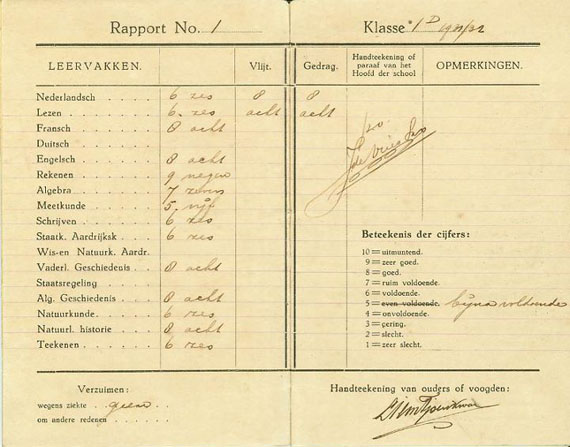 Rapport No. 1 Klasse 1 D 1921/22
LEERVAKKEN. Vlijt. Gedrag. Handteekening of paraaf van het Hoofd der school OPMERKINGEN.
Nederlandsch . . . . . 6 zes 8 8
Lezen . . . . . . . 6. zes acht acht
Fransch . . . . . . 8 acht
Duitsch . . . . . .
Engelsch . . . . . . 8 acht
Rekenen . . . . . . 9 negen
Algebra . . . . . . 7 zeven
Meetkunde . . . . . 5. vijf
Schrijven . . . . . . 6 zes
Staatk. Aardrijksk . . . 6 zes
Wis-en Natuurk. Aardr.
Vaderl. Geschiedenis . . 8 acht
Staatsregeling . . . .
Alg. Geschiedenis . . . 8 acht
Natuurkunde . . . . . 6 zes
Natuurl. historie . . . 8 acht
Teekenen . . . . . . 6 zes
Beteekenis der cijfers:
10 = uitmuntend.
9 = zeer goed.
8 = goed.
7 = ruim voldoende.
6 = voldoende.
5 = even voldoende. bijna voldoende
4 = onvoldoende.
3 = gering.
2 = slecht.
1 = zeer slecht.
Verzuimen:
wegens ziekte . geen . .
om andere redenen . . . . .
Handteekening van ouders of voogden: